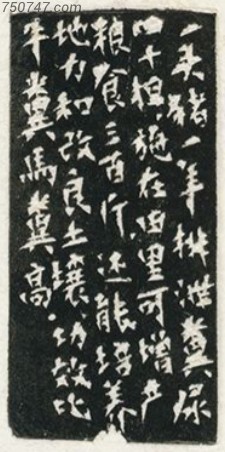 750747.com
一头猪一年排泄粪尿
四十担,施在田里可增产
粮食三百斤,还能培养
地力和改良土壤,功效比
牛粪马粪高。